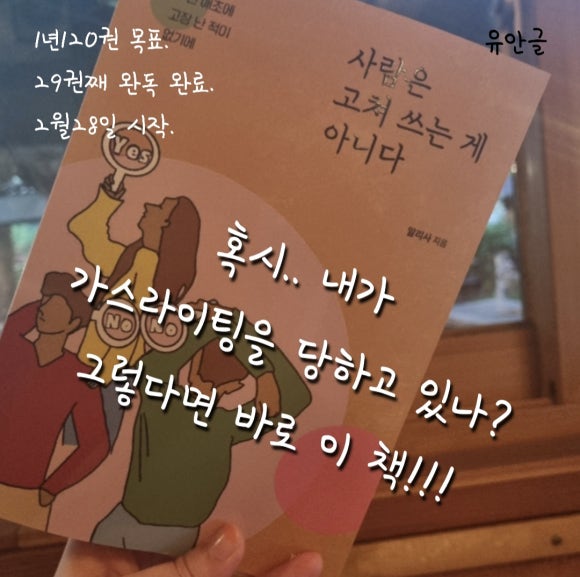 1년120권 목표.
29권째 완독 완료.
2월28일 시작.
유안글
애초에
고장 난 적이
없기에
사람은
고쳐 쓰는 게
아니다
알리사 지음
Yes
NO
NO
혹시.. 내가
가스라이팅을 당하고 있나?
그렇다면 바로 이 책!!!